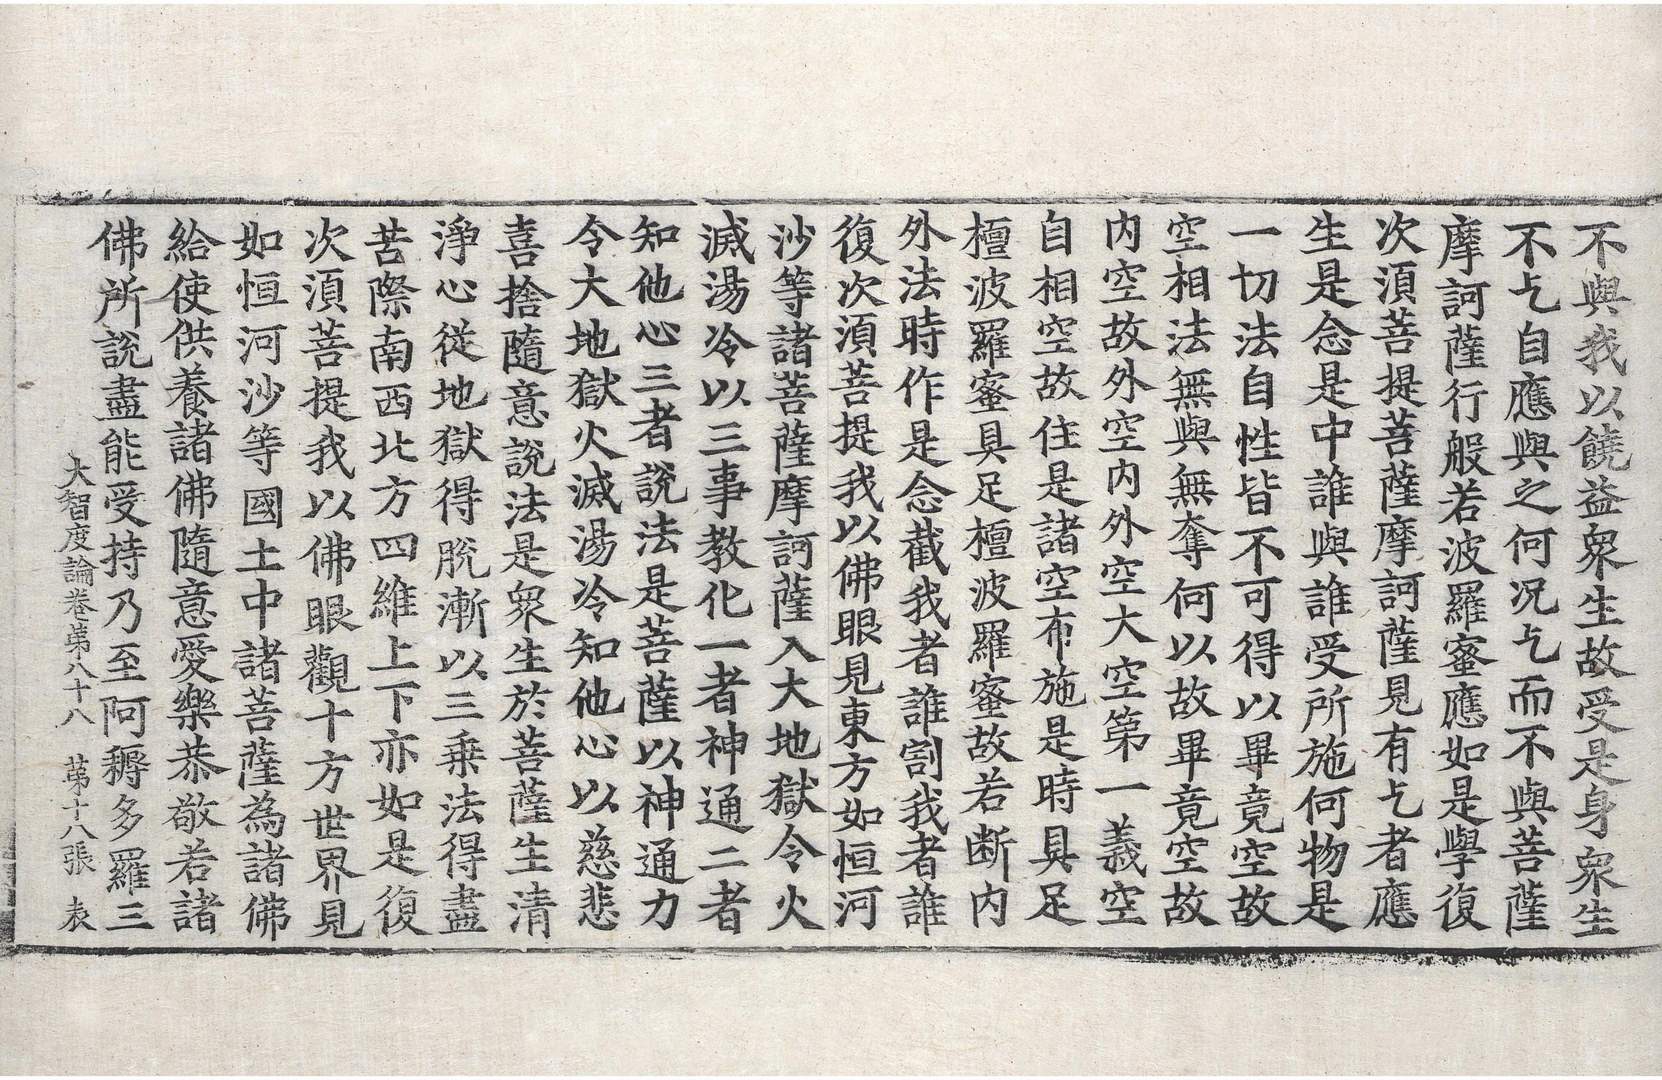 不與我以饒益衆生故受是身衆生
不乞自應與之何况乞而不與菩薩
摩訶薩行般若波羅蜜應如是學復
次須菩提菩薩摩訶薩見有乞者應
生是念是中誰與誰受所施何物是
一切法自性皆不可得以畢竟空故
空相法無與無奪何以故畢竟空故
内空故外空内外空大空第一義空
自相空故住是諸空布施是時具足
檀波羅蜜具足檀波羅蜜故若断内
外法時作是念截我者誰割我者誰
復次須菩提我以佛眼見東方如恒河
沙等諸菩薩摩訶薩入大地獄令火
滅湯冷以三事教化一者神通二者
知他心三者說法是菩薩以神通力
令大地獄火滅湯冷知他心以慈悲
喜捨隨意說法是衆生於菩薩生清
淨心從地獄得脫漸以三乗法得盡
苦際南西北方四維上下亦如是復
次須菩提我以佛眼觀十方世界見
如恒河沙等國土中諸菩薩為諸佛
給使供養諸佛隨意愛樂恭敬若諸
佛所說盡能受持乃至阿耨多羅三
大智度論卷第八十八 第十八張 表